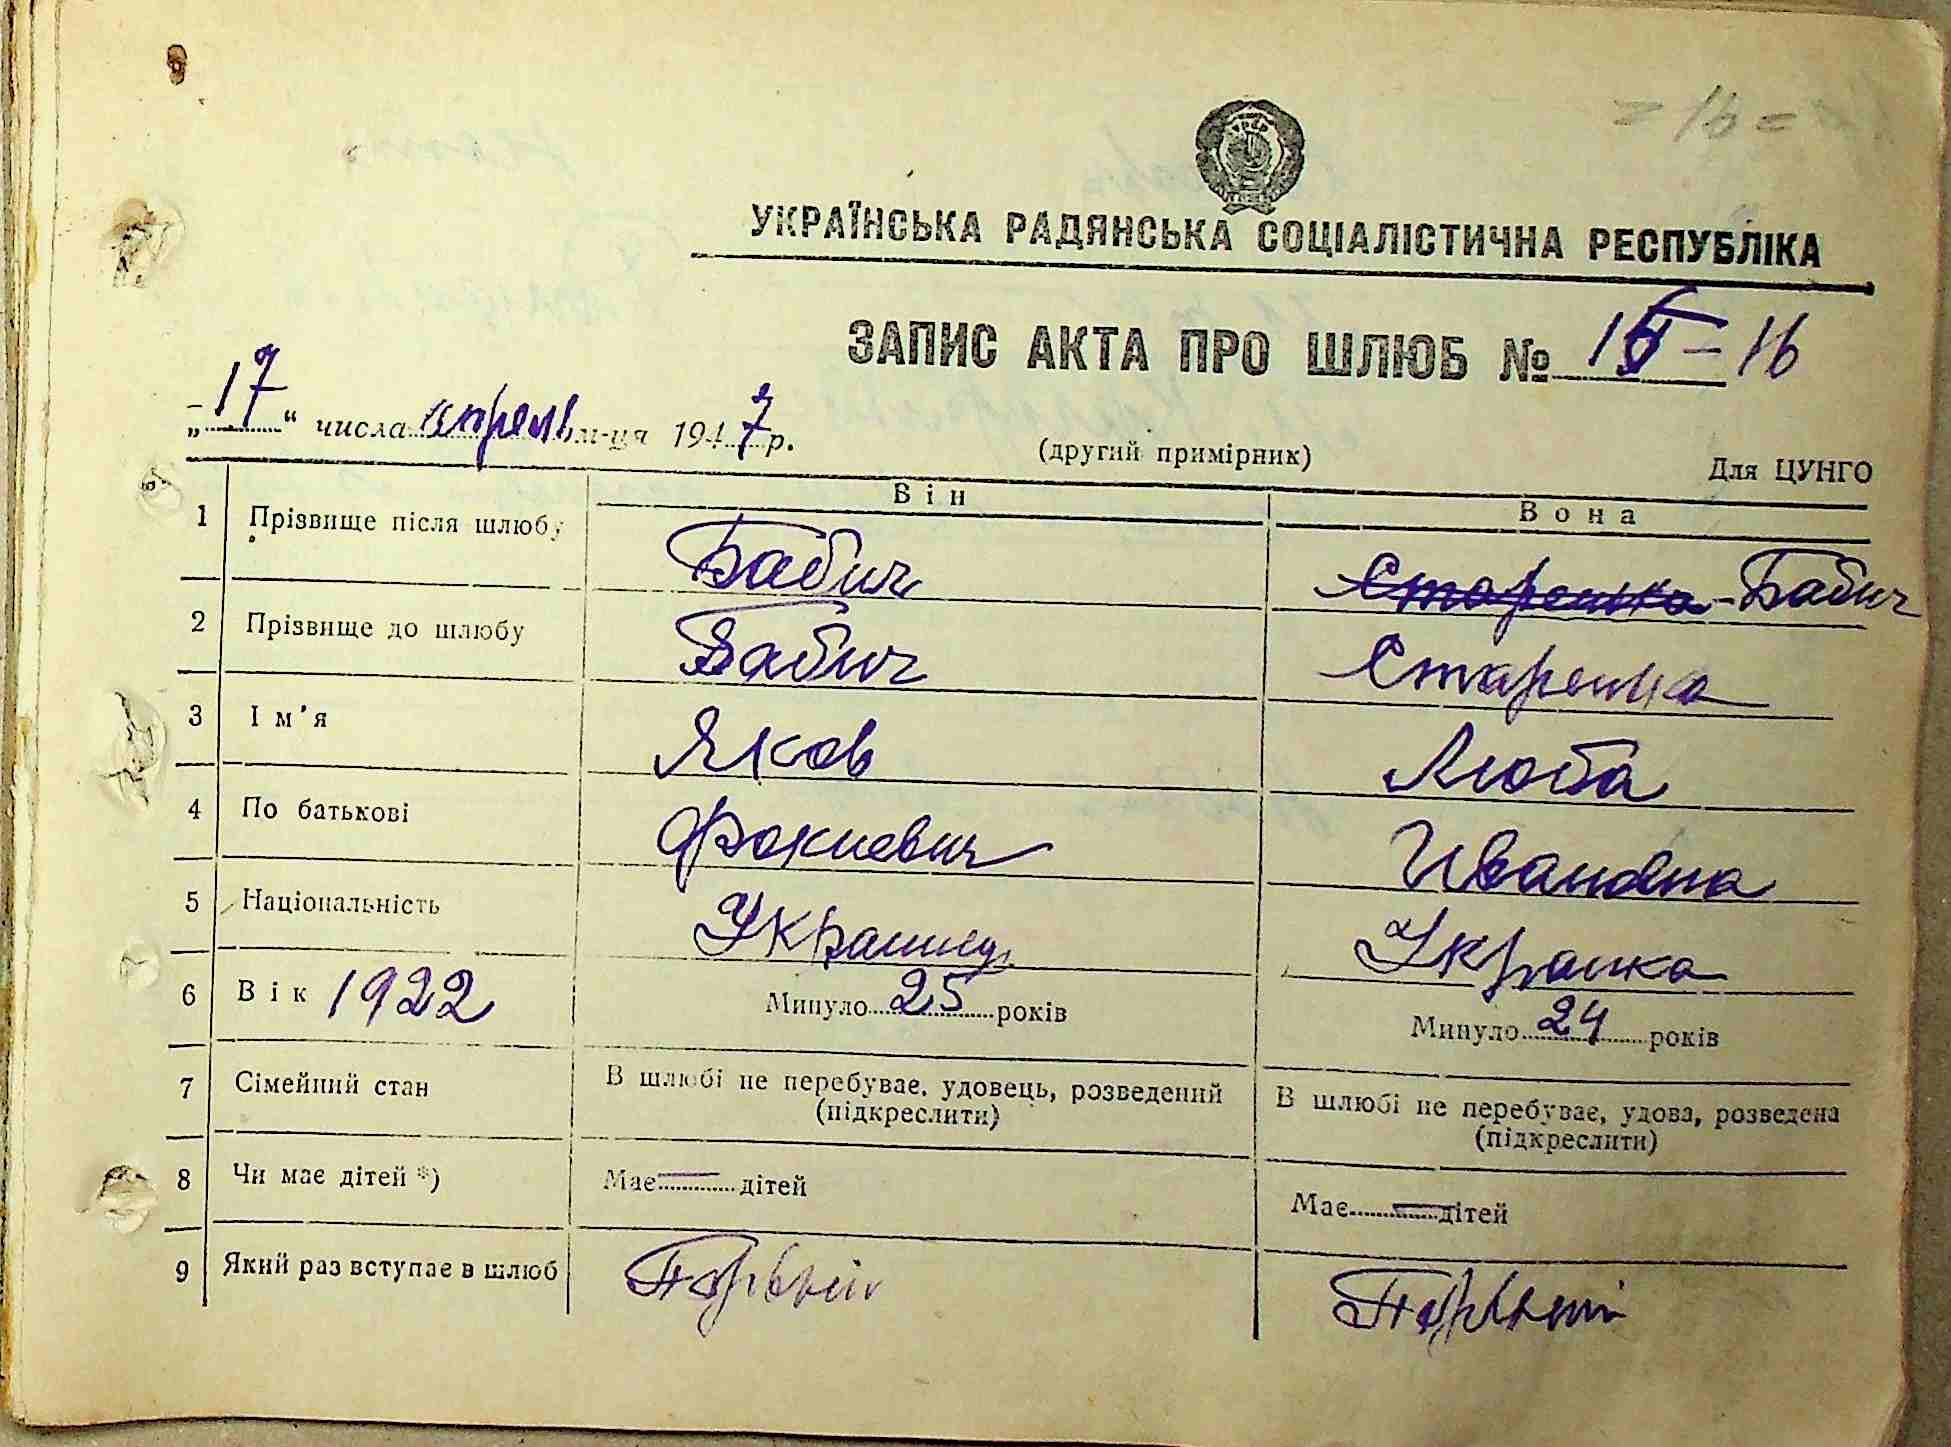 = 16 =
УКРАЇНСЬКА РАДЯНСЬКА СОЦІАЛІСТИЧНА РЕСПУБЛІКА
ЗАПИС АКТА ПРО ШЛЮБ № 16
„17“ числа апрель м-ця 1947 р.
(другий примірник)
Для ЦУНГО
Він Вона
1 Прізвище після шлюбу Бабич Старенка - Бабич
2 Прізвище до шлюбу Бабич Старенка
3 Ім'я Яков Люба
4 По батькові Фокиевич Ивановна
5 Національність Украинец Украинка
6 Вік 1922 Минуло 25 років Минуло 24 років
7 Сімейний стан В шлюбі не перебуває, удовець, розведений (підкреслити) В шлюбі не перебуває, удова, розведена (підкреслити)
8 Чи має дітей *) Має — дітей Має — дітей
9 Який раз вступає в шлюб Первый Первый